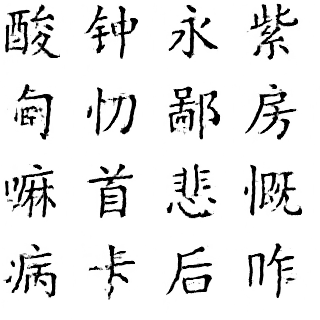 酸钟永紫
甸忉鄙房
嘛首悲慨
病卡后咋